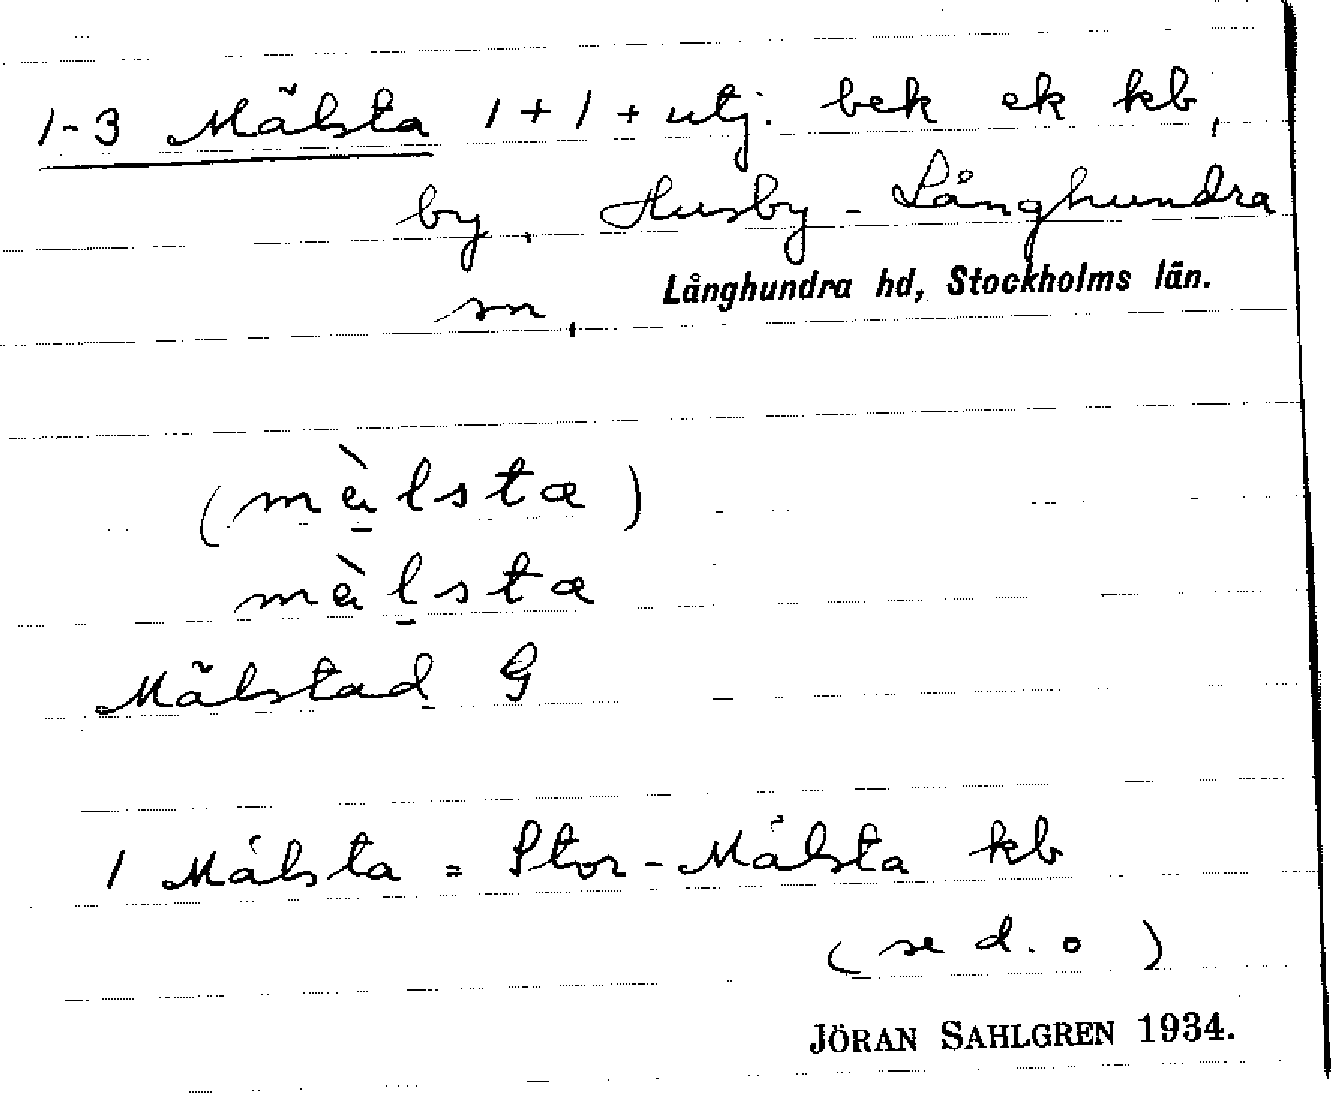 1-3 Mälsta 1 + 1 + utj. bek ek kb,
by, Husby-Långhundra
sn, Långhundra hd, Stockholms län.
(mä̀lsta)
mä̀lsta
Mälstad G
1 Mälsta = Stor-Mälsta kb
(se d. o)
JÖRAN SAHLGREN 1934.